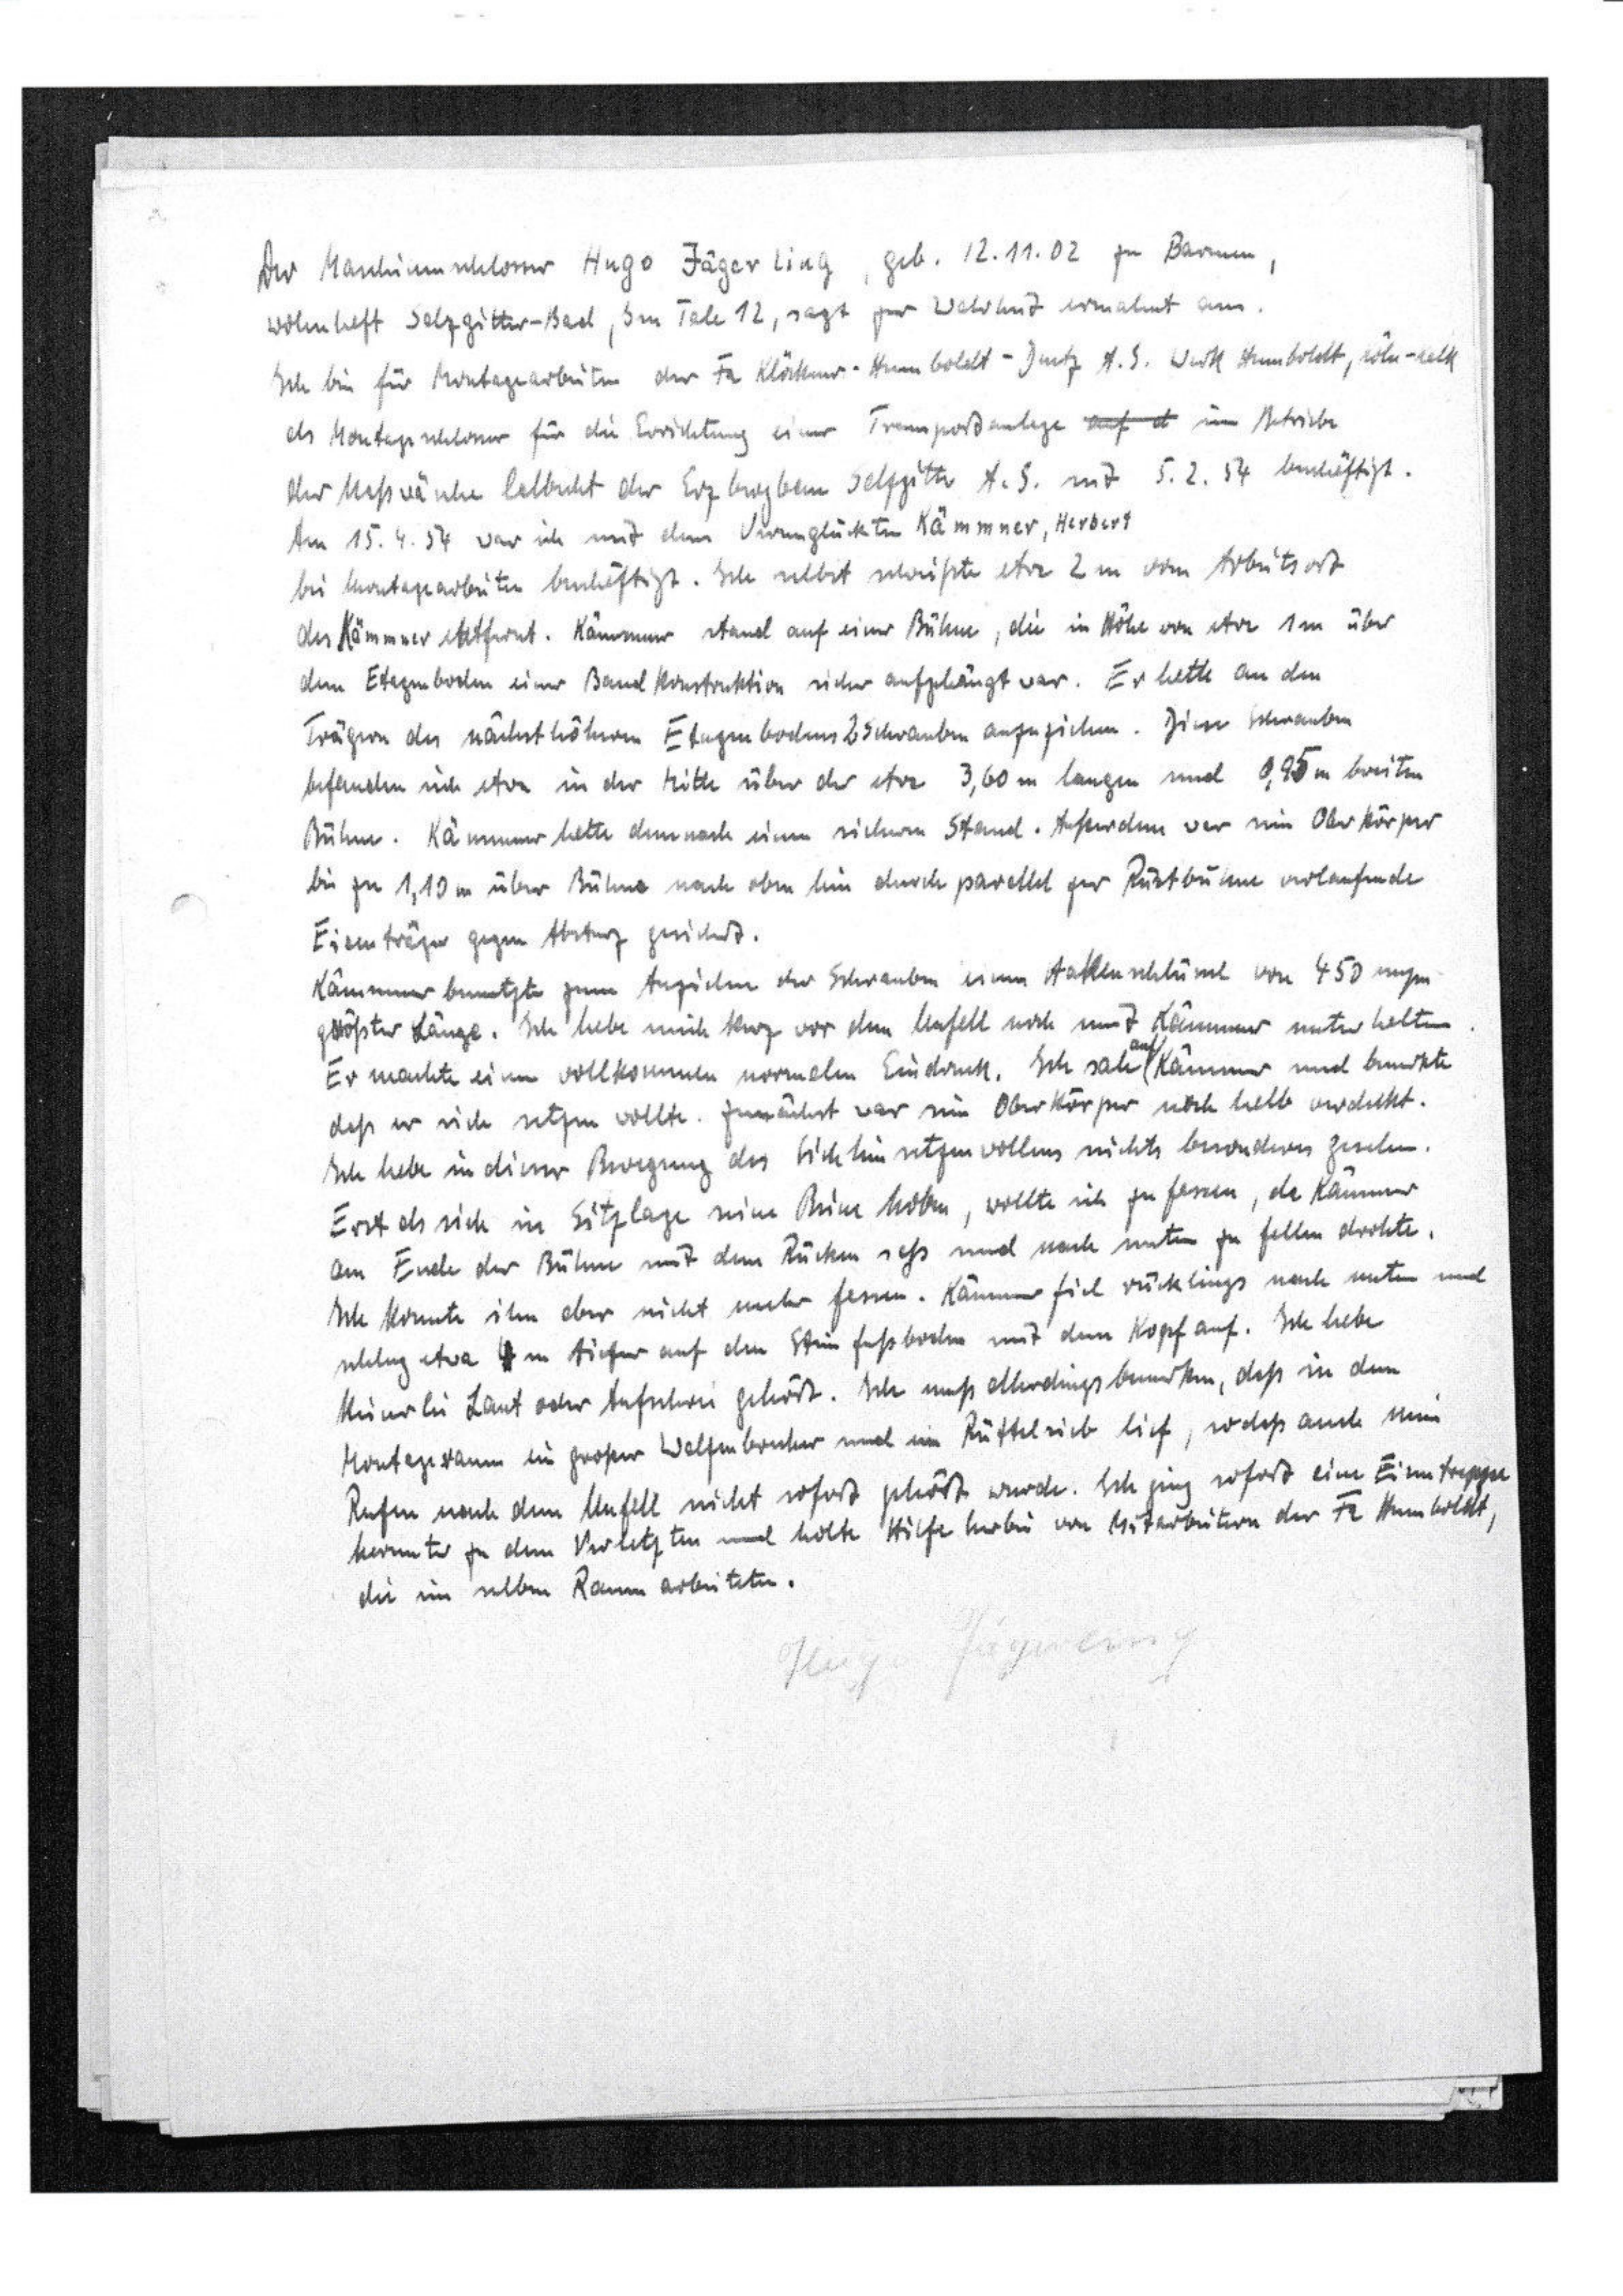 Der Maschinenschlosser Hugo Jägerling, geb. 12.11.02 zu Barmen,
wohnhaft Salzgitter-Bad, Im Tale 12, sagt zur Wahrheit ermahnt aus.
Ich bin für Montagearbeiten der Fa Klöckner-Humboldt-Deutz A.G. Werk Humboldt, Köln-Kalk
als Montageschlosser für die Errichtung einer Transportanlage auf d im Betriebe
der Naßwäsche Calbecht der Erzbergbau Salzgitter A.G. seit 5.2.54 beschäftigt.
Am 15.4.54 war ich mit dem Verunglückten Kämmner, Herbert
bei Montagearbeiten beschäftigt. Ich selbst schweißte etwa 2 m vom Arbeitsort
des Kämmner entfernt. Kämmner stand auf einer Bühne, die in Höhe von etwa 1 m über
dem Etagenboden einer Bandkonstruktion sicher aufgehängt war. Er hatte an den
Trägern des nächsthöheren Etagenbodens 2 Schrauben anzuziehen. Diese Schrauben
befanden sich etwa in der Mitte über der etwa 3,60 m langen und 0,95 m breiten
Bühne. Kämmner hatte demnach einen sicheren Stand. Außerdem war sein Oberkörper
bis zu 1,10 m über Bühne nach oben hin durch parallel zur Rüstbühne verlaufende
Eisenträger gegen Absturz gesichert.
Kämmner benutzte zum Anziehen der Schrauben einen Hakenschlüssel von 450
größter Länge. Ich habe mich kurz vor dem Unfall noch mit Kämmner unterhalten.
Er machte einen vollkommen normalen Eindruck. Ich sah auf Kämmner und bemerkte
daß er sich setzen wollte. Zunächst war sein Oberkörper noch halb verdeckt.
Ich habe in dieser Bewegung des Sichhinsetzenwollens nichts besonderes gesehen.
Erst als sich in Sitzlage seine Beine hoben, wollte ich zu fassen, da Kämmner
am Ende der Bühne mit dem Rücken saß und nach unten zu fallen drohte.
Ich konnte ihn aber nicht mehr fassen. Kämmner fiel rücklings nach unten und
schlug etwa 4 m tiefer auf den Steinfußboden mit dem Kopf auf. Ich habe
keinerlei Laut oder Aufschrei gehört. Ich muß allerdings bemerken, daß in dem
Montageraum ein großer Walzenbrecher und ein Rüttelsieb lief, sodaß auch mein
Rufen nach dem Unfall nicht sofort gehört wurde. Ich ging sofort eine Eisentreppe
herunter zu dem Verletzten und holte Hilfe herbei von Mitarbeitern der Fa Humboldt,
die im selben Raum arbeiteten.
Hugo Jägerling